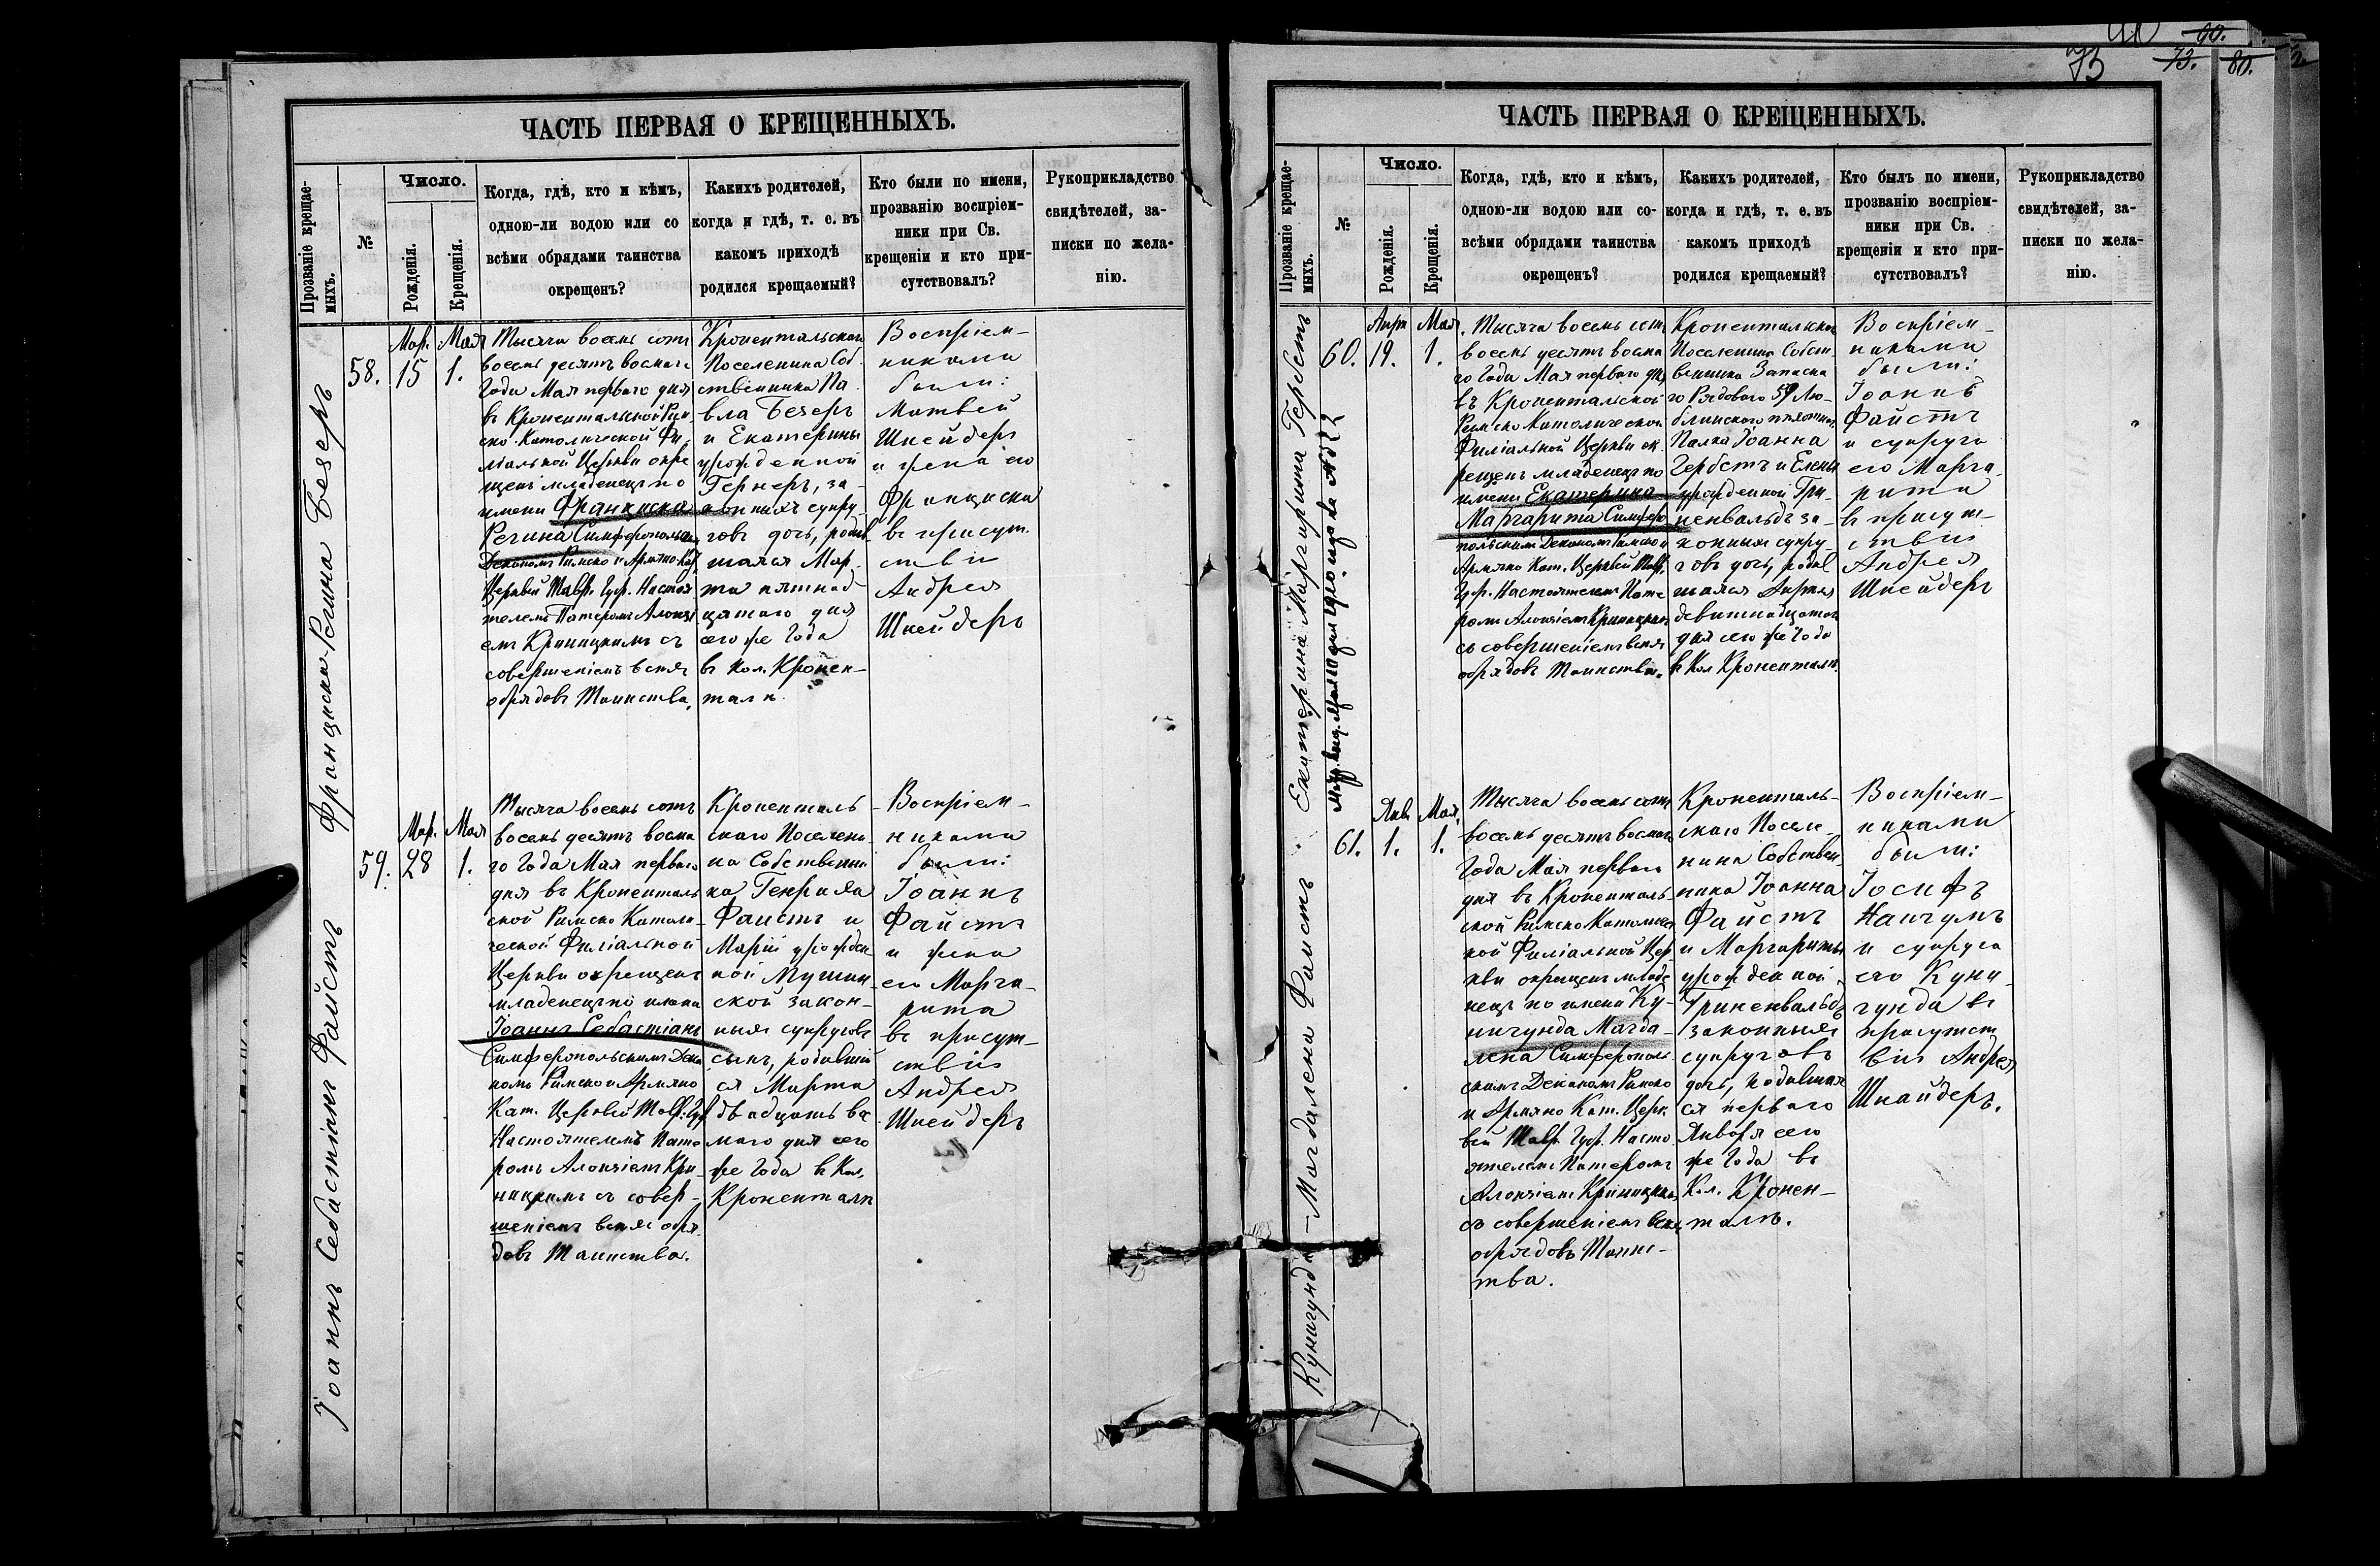 90.
73
73.
80.
ЧАСТЬ ПЕРВАЯ О КРЕЩЕННЫХЪ.
Прозваніе крещае-
мыхъ.
№
Число.
Рожденія.
Крещенія.
Когда, гдѣ, кто и кѣмъ,
одною-ли водою или со
всѣми обрядами таинства
окрещенъ?
Какихъ родителей,
когда и гдѣ, т. е. въ
какомъ приходѣ
родился крещаемый?
Кто были по имени,
прозванію воспріем-
ники при Св.
крещеніи и кто при-
сутствовалъ?
Рукоприкладство
свидѣтелей, за-
писки по жела-
нію.
Франциска-Регина Безеръ
58.
Мар.
15
Мая
1.
Тысяча восемь сотъ
восемь десятъ восмаго
Года Мая перваго дня
въ Кронентальской Рим
ско-Католической Фи-
ліальной Церкви окре
щенъ младенецъ по
имени Франциска
Регина Симферопольск
Деканомъ Римско и Армяно-Кат
Церквей Тавр. Губ. Настоя
телемъ Патеромъ Алоизі
емъ Криницкимъ съ
совершеніемъ всѣхъ
обрядовъ Таинства.
Кронентальскаго
Поселенина Соб
ственника Па
вла Безеръ
и Екатерины
урожденной
Гернеръ, за-
конныхъ супру-
говъ дочь, родив
шаяся Мар
та пятнад
цатаго дня
сего же Года
въ Кол. Кронен-
талѣ.
Воспріем-
никами
были:
Матвей
Шнейдеръ
и жена его
Франциска
въ присут
ствіи
Андрея
Шнейдеръ
Іоаннъ Себастіанъ Файстъ
59.
Мар.
28
Мая
1.
Тысяча восемь сотъ
восемь десятъ восма
го Года Мая перваго
дня въ Кроненталь
ской Римско Католи-
ческой Филіальной
Церкви окрещенъ
младенецъ по имени
Іоаннъ Себастіанъ
Симферопольскимъ Дека
номъ Римско и Армяно
Кат. Церквей Тавр. Губ.
Настоятелемъ Пате
ромъ Алоизіемъ Кри-
ницкимъ съ совер-
шеніемъ всѣхъ обря
довъ Таинства.
Кроненталь
скаго Поселени
на Собственни
ка Генриха
Файстъ и
Маріи урожден
ной Мушин
ской закон-
ныхъ супруговъ
сынъ, родившій
ся Марта
двадцать вос
маго дня сего
же Года въ Кол.
Кроненталѣ
Воспріем-
никами
были:
Іоаннъ
Файстъ
и жена
его Марга-
рита
въ присут-
ствіи
Андрея
Шнейдеръ
ЧАСТЬ ПЕРВАЯ О КРЕЩЕННЫХЪ.
Прозваніе крещае-
мыхъ.
№
Число.
Рожденія.
Крещенія.
Когда, гдѣ, кто и кѣмъ,
одною-ли водою или со-
всѣми обрядами таинства
окрещенъ?
Какихъ родителей,
когда и гдѣ, т. е. въ
какомъ приходѣ
родился крещаемый?
Кто былъ по имени,
прозванію воспріем-
ники при Св.
крещеніи и кто при-
сутствовалъ?
Рукоприкладство
свидѣтелей, за-
писки по жела-
нію.
Екатерина Маргарита Гербстъ
60.
Апрл
19.
Мая.
1.
Тысяча восемь сотъ
восемь десятъ восма
го Года Мая перваго дня
въ Кронентальской
Римско Католической
Филіальной Церкви ок
рещенъ младенецъ по
имени Екатерина
Маргарита Симферо
польскимъ Деканомъ Римско и
Армяно Кат. Церквей Тавр.
Губ. Настоятелемъ Пате
ромъ Алоизіемъ Криницкимъ
съ совершеніемъ всѣхъ
обрядовъ Таинства.
Кронентальскаго
Поселенина Собст
венника Запасна
го Рядоваго 59 Лю-
блинскаго пѣхотнаго
Полка Іоанна
Гербстъ и Елены
урожденной Гри-
ненвальдъ за-
конныхъ супру-
говъ дочь, родив
шаяся Апрѣля
девятнадцатаго
дня сего же Года
въ Кол Кроненталѣ.
Воспріем-
никами
были:
Іоаннъ
Файстъ
и супруга
его Марга-
рита
въ присут-
ствіи
Андрея
Шнейдеръ
Кунигунда-Магдалена Файстъ
61.
Янв.
1.
Мая.
1.
Тысяча восемь сотъ
восемь десятъ восмаго
Года Мая перваго
дня въ Кроненталь-
ской Римско Католичес
кой Филіальной Цер
кви окрещенъ младе
нецъ по имени Ку-
нигунда Магда-
лена Симферополь
скимъ Деканомъ Римско
и Армяно Кат. Церк
вей Тавр. Губ. Насто
ятелемъ Патеромъ
Алоизіемъ Криницкимъ
съ совершеніемъ всѣхъ
обрядовъ Таинс-
тва.
Кроненталь-
скаго Поселе-
нина Собствен-
ника Іоанна
Файстъ
и Маргариты
урожденной
Гриненвальдъ
законныхъ
супруговъ
дочь, родившая
ся перваго
Января сего
же Года въ
Кол. Кронен-
талѣ.
Воспріем-
никами
были:
Іосифъ
Начумъ
и супруга
его Куни-
гунда въ
присутст
віи Андрея
Шнайдеръ.